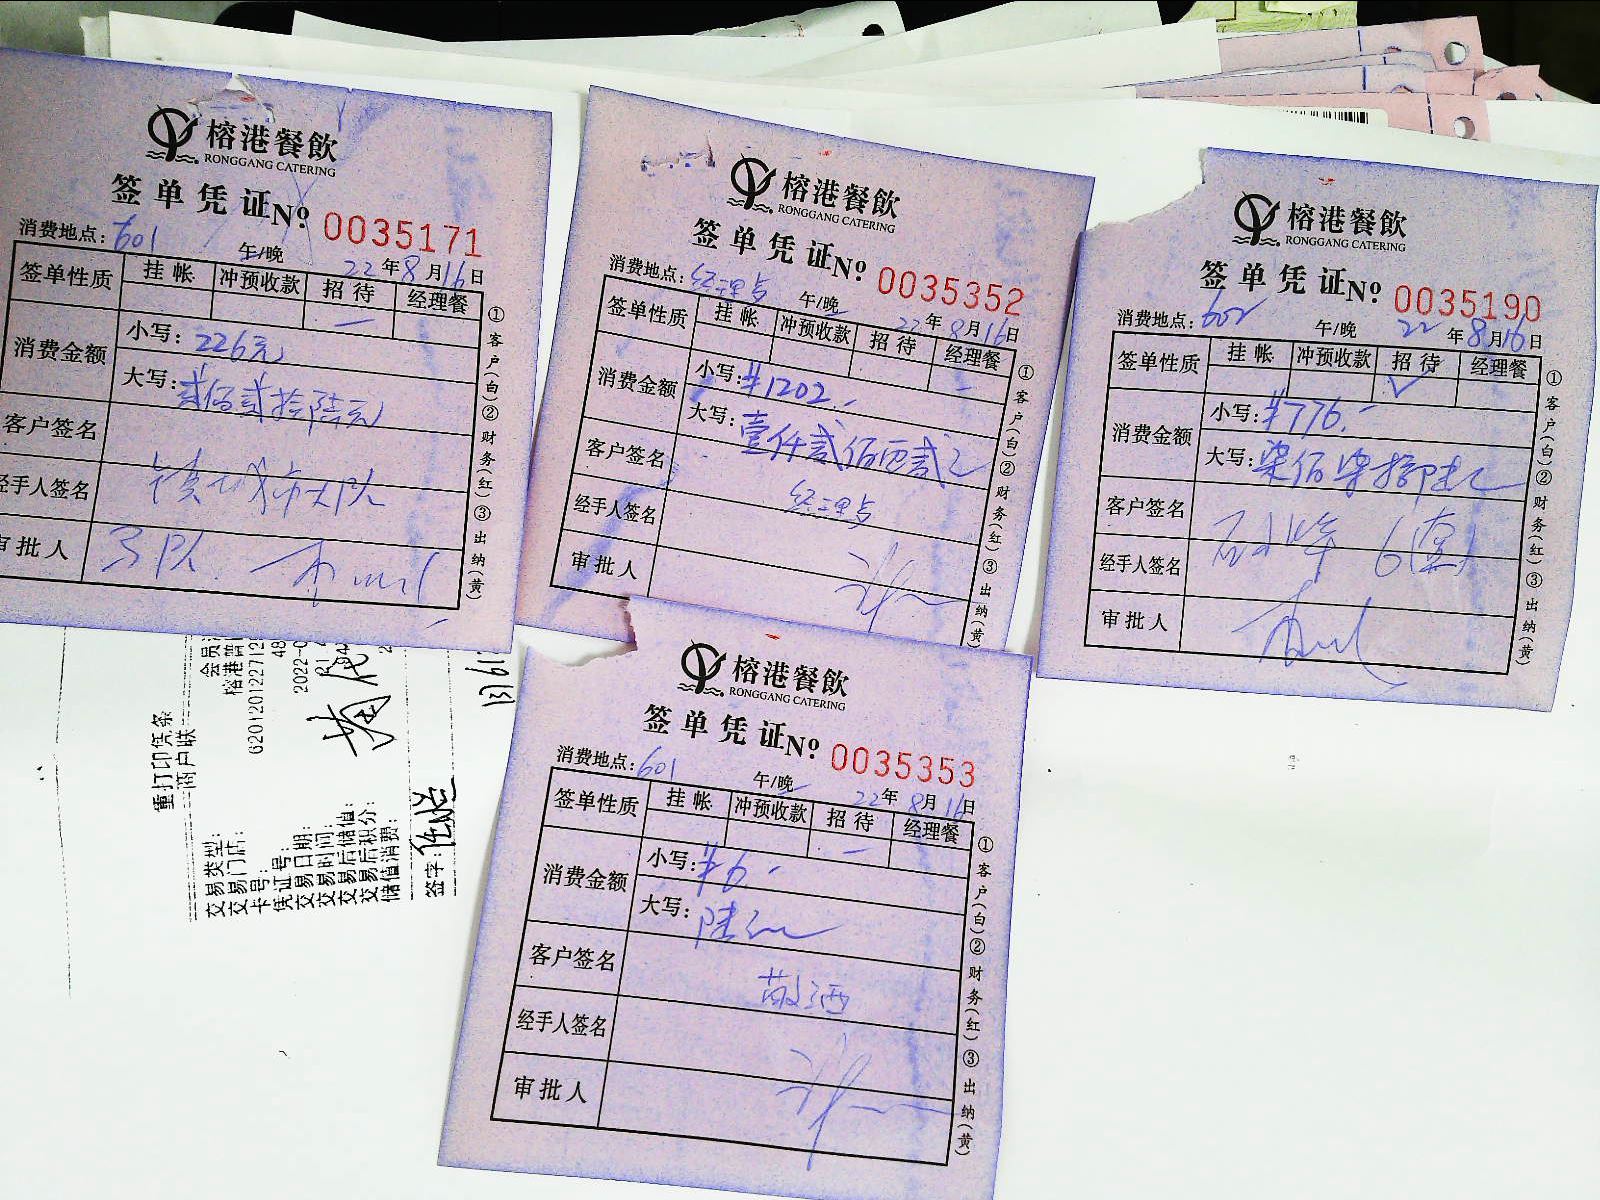 榕港餐飲
RONGGANG CATERING
签单凭证 № 0035171
消费地点：601 午/晚 22年8月16日
签单性质 挂帐 冲预收款 招待 经理餐
消费金额 小写：226元
大写：贰佰贰拾陆元
客户签名
经手人签名
审批人
①客户(白)②财务(红)③出纳(黄)
榕港餐飲
RONGGANG CATERING
签单凭证 № 0035352
消费地点： 午/晚 22年8月16日
签单性质 挂帐 冲预收款 招待 经理餐
消费金额 小写：¥1202.-
大写：壹仟贰佰
客户签名
经手人签名
审批人
①客户(白)②财务(红)③出纳(黄)
榕港餐飲
RONGGANG CATERING
签单凭证 № 0035190
消费地点：602 午/晚 22年8月16日
签单性质 挂帐 冲预收款 招待 经理餐
消费金额 小写：¥776.-
大写：柒佰柒拾陆元
客户签名
经手人签名
审批人
①客户(白)②财务(红)③出纳(黄)
榕港餐飲
RONGGANG CATERING
签单凭证 № 0035353
消费地点：601 午/晚 22年8月16日
签单性质 挂帐 冲预收款 招待 经理餐
消费金额 小写：¥6.-
大写：陆元
客户签名 敬酒
经手人签名
审批人
①客户(白)②财务(红)③出纳(黄)
重打印凭条
商户联
交易类型：
交易门店：
卡号：
凭证号：
交易日期：
交易时间：
交易后储值：
交易后积分：
储值消费：
签字：